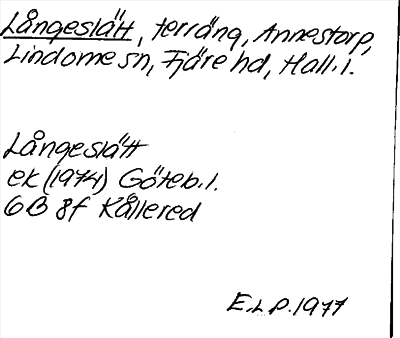 Långeslätt, terräng, Annestorp,
Lindome sn, Fjäre hd, Hall. l.
Långeslätt
ek (1974) Göteb. l.
6B 8f Kållered
E.L.P. 1977